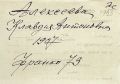 Алексеева
Клавдия Антоновна
1927
Франко 73